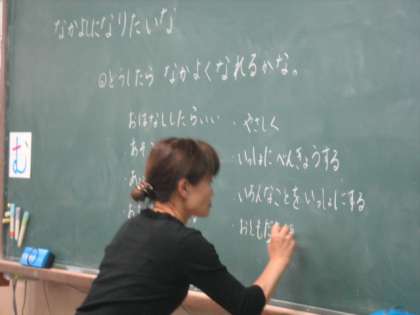 なかよしになりたいな
◎どうしたら なかよくなれるかな。
おはなししたらいい
・やさしく
あそ
・いっしょにべんきょうする
・いろんなことをいっしょにする
む